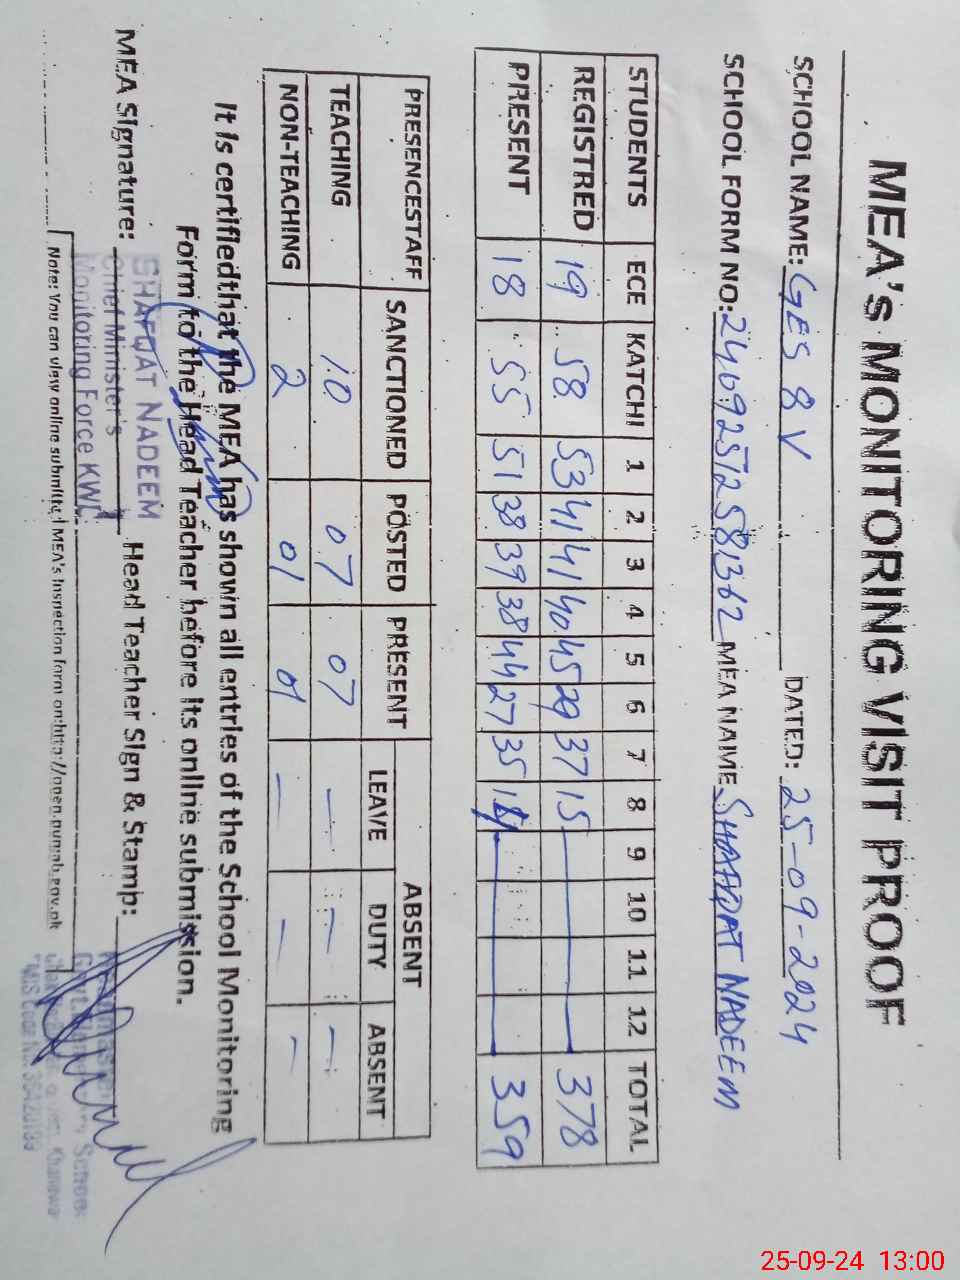 MEA's MONITORING VISIT PROOF
SCHOOL NAME: GES 8 V DATED: 25-09-2024
SCHOOL FORM NO: MEA NAME SHAFQAT NADEEM
STUDENTS ECE KATCHI 1 2 3 4 5 6 7 8 9 10 11 12 TOTAL
REGISTRED 19 58 53 41 41 40 45 29 37 15 378
PRESENT 18 55 51 38 39 38 44 27 35 14 359
PRESENCESTAFF SANCTIONED POSTED PRESENT ABSENT
LEAVE DUTY ABSENT
TEACHING 10 07 07 — — —
NON-TEACHING 2 01 01 — — —
It is certifiedthat the MEA has shown all entries of the School Monitoring
Form to the Head Teacher before its online submission.
MEA Signature: Head Teacher Sign & Stamp:
SHAFQAT NADEEM
Chief Minister's
Monitoring Force KWL
Note: You can view online submitted MEA's Inspection form on:http://open.punjab.gov.pk
25-09-24 13:00